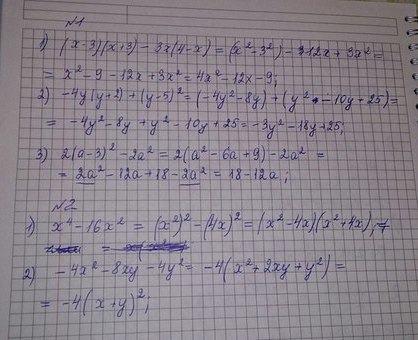 №1
1) (x-3)(x+3) - 3x(4-x) = (x²-3²) - 12x + 3x² =
= x² - 9 - 12x + 3x² = 4x² - 12x - 9;
2) -4y(y+2) + (y-5)² = (-4y² - 8y) + (y² - 10y + 25) =
= -4y² - 8y + y² - 10y + 25 = -3y² - 18y + 25;
3) 2(a-3)² - 2a² = 2(a² - 6a + 9) - 2a² =
= 2a² - 12a + 18 - 2a² = 18 - 12a;
№2
1) x⁴ - 16x² = (x²)² - (4x)² = (x² - 4x)(x² + 4x);
=
2) -4x² - 8xy - 4y² = -4(x² + 2xy + y²) =
= -4(x+y)²;